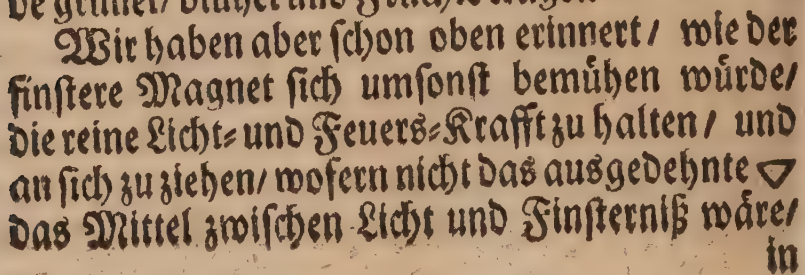 de grünet/ blühet und
Wir haben aber ſchon oben erinnert/ wie der
finſtere Magnet ſich umſonſt bemühen würde/
die reine Licht⸗ und Feuers⸗Krafft zu halten/ und
an ſich zu ziehen/ wofern nicht das ausgedehnte 🜄
das Mittel zwiſchen Licht und Finſterniß wäre/
in